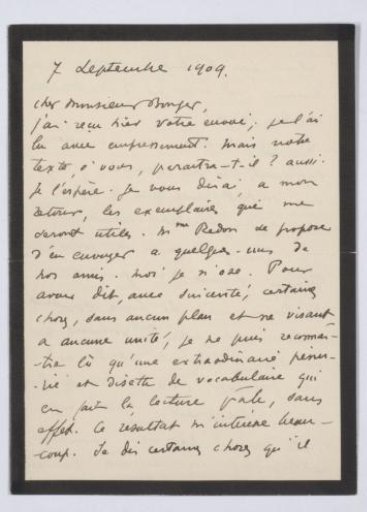 7 Septembre 1909.
Cher Monsieur Bonger,
j'ai reçu hier votre envoi; je l'ai
lu avec empressement. Mais votre
texte, à vous, paraitra-t-il? aussi.
Je l'espère. Je vous dirai, a mon
retour, les exemplaires qui me
seront utiles. Mme Redon se propose
d'en envoyer a quelques-uns de
nos amis. Moi je n'ose. Pour
avoir dit, avec sincérité, certaines
choses, sans aucun plan et ne visant
a aucune unité, je ne puis reconnaî-
-tre là qu'une extraordinaire pénu-
-rie et disette de vocabulaire qui
en fait la lecture pâle, sans
effet. Ce résultat m'intéresse beau-
-coup. Je dis certaines choses qu'il